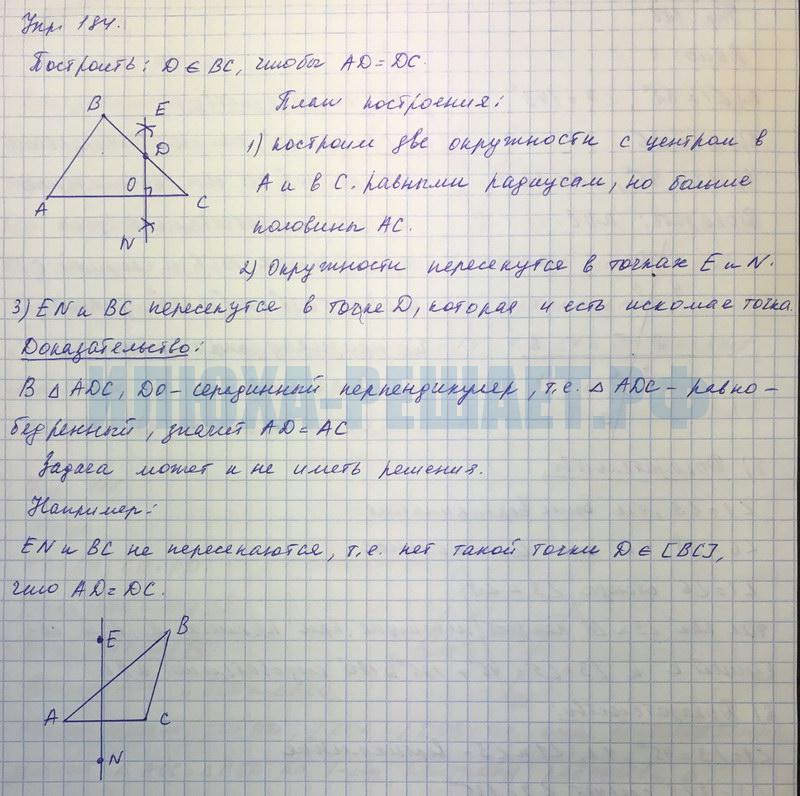 Упр. 184.
Построить: D ∈ BC, чтобы AD = DC.
План построения:
1) построим две окружности с центром в
A и в C. равными радиусам, но больше
половины AC.
2) Окружности пересекутся в точках E и N.
3) EN и BC пересекутся в точке D, которая и есть искомая точка.
B
E
D
O
A
C
N
Доказательство:
В △ ADC, DO - серединный перпендикуляр, т.е. △ ADC - равно-
бедренный, значит AD = AC
Задача может и не иметь решения.
Например:
EN и BC не пересекаются, т.е. нет такой точки D ∈ [BC],
что AD = DC.
E
B
A
C
N
ИЛЮХА-РЕШАЕТ.РФ